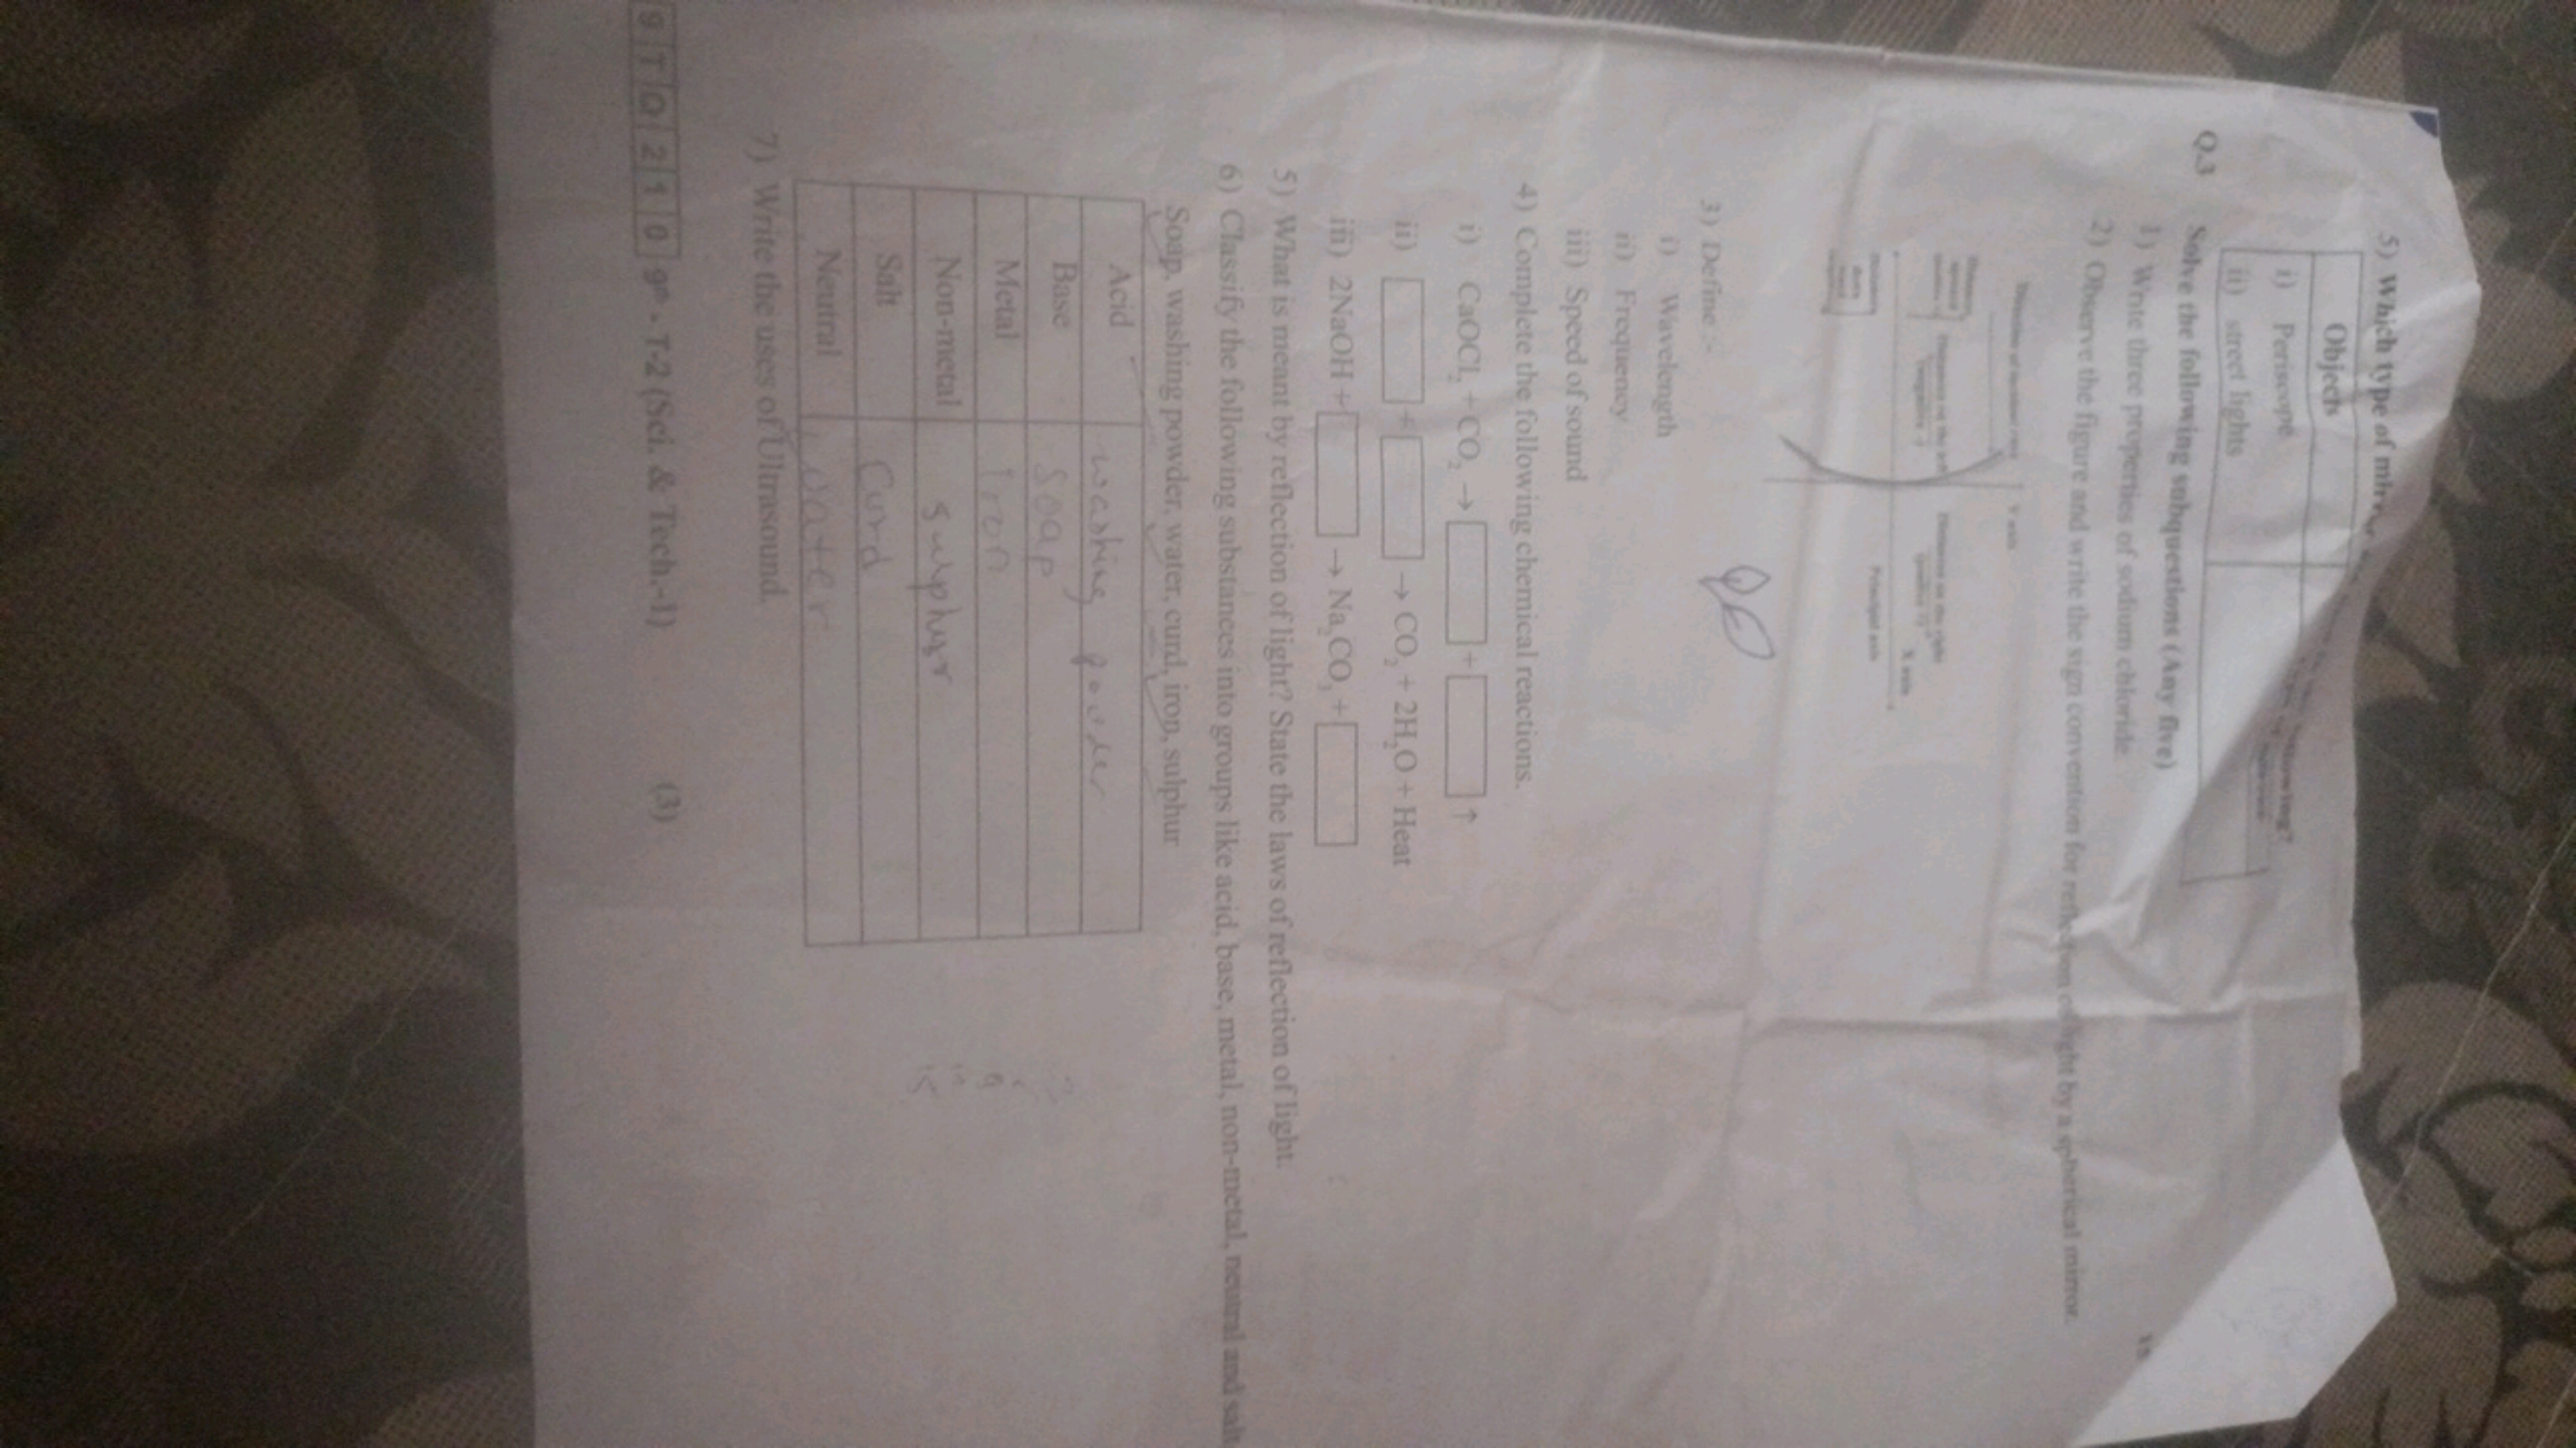 5) Which type of
Objects
i) Periscope
ii) street lights
Q.3 Solve the following subquestions (Any five) 15
1) Write three properties of sodium chloride.
2) Observe the figure and write the sign convention for reflection of light by a spherical mirror.
Y axis
X axis
Principal axis
3) Define :-
i) Wavelength
ii) Frequency
iii) Speed of sound
4) Complete the following chemical reactions.
i) CaOCl₂ + CO₂ → + ↑
ii) + → CO₂ + 2H₂O + Heat
iii) 2NaOH + → Na₂CO₃ +
5) What is meant by reflection of light? State the laws of reflection of light.
6) Classify the following substances into groups like acid, base, metal, non-metal, neutral and salt.
Soap, washing powder, water, curd, iron, sulphur
Acid washing powder
Base soap
Metal Iron
Non-metal sulphur
Salt Curd
Neutral water
7) Write the uses of Ultrasound.
9 T 0 2 1 0 9ᵗʰ - T-2 (Sci. & Tech.-1) (3)